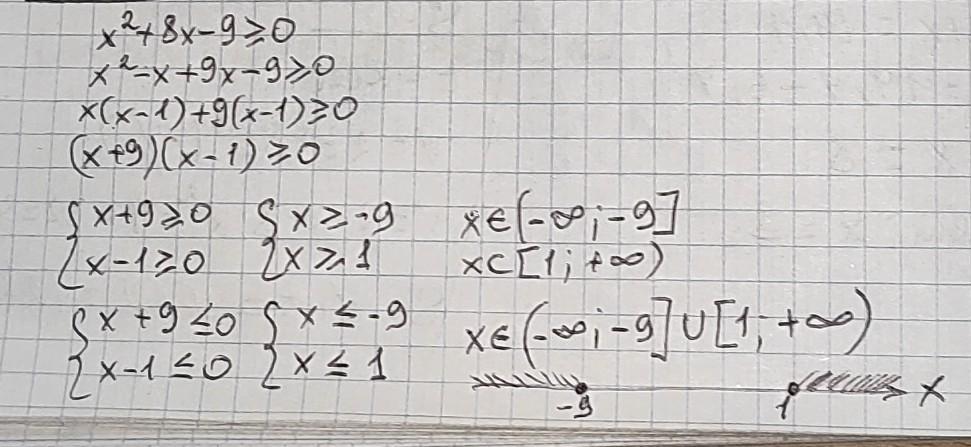 x²+8x-9≥0
x²-x+9x-9≥0
x(x-1)+9(x-1)≥0
(x+9)(x-1)≥0
{x+9≥0 {x≥-9 x∈(-∞;-9]
{x-1≥0 {x≥1 x⊂[1;+∞)
{x+9≤0 {x≤-9 x∈(-∞;-9]∪[1;+∞)
{x-1≤0 {x≤1
-9 1 x